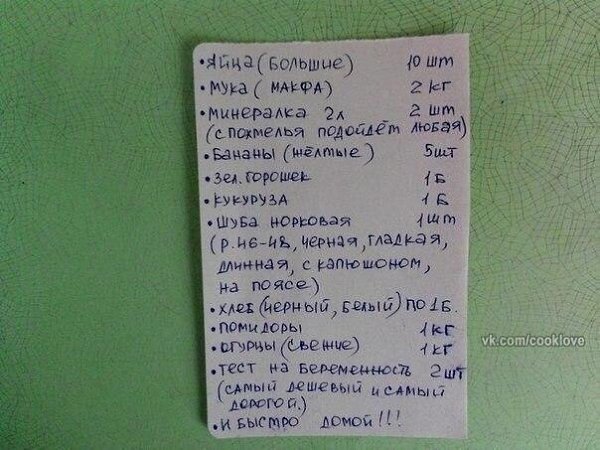 • Яйца (большие) 10 шт
• мука (макфа) 2 кг
• минералка 2л 2 шт
(с похмелья подойдёт любая)
• Бананы (жёлтые) 5шт
• зел. горошек 1Б
• кукуруза 1Б
• шуба норковая 1шт
(р.46-48, черная, гладкая,
длинная, с капюшоном,
на поясе)
• хлеб (черный, белый) по 1Б.
• помидоры 1кг
• огурцы (свежие) 1кг
• тест на беременность 2шт
(самый дешевый и самый
дорогой.)
• и быстро домой!!!
vk.com/cooklove